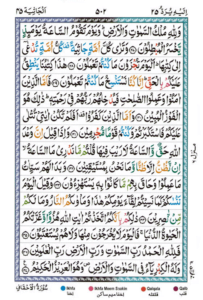 اِلَيْهِ يُرَدُّ ٢٥ ٥٠٢ اَلْجَاثِيَة ٤٥
وَلِلّٰهِ مُلْكُ السَّمٰوٰتِ وَالْاَرْضِ ؕ وَيَوْمَ تَقُوْمُ السَّاعَةُ يَوْمَئِذٍ
يَّخْسَرُ الْمُبْطِلُوْنَ وَتَرٰى كُلَّ اُمَّةٍ جَاثِيَةً كُلُّ اُمَّةٍ تُدْعٰۤى
اِلٰى كِتٰبِهَا ؕ اَلْيَوْمَ تُجْزَوْنَ مَا كُنْتُمْ تَعْمَلُوْنَ هٰذَا كِتٰبُنَا يَنْطِقُ
عَلَيْكُمْ بِالْحَقِّ ؕ اِنَّا كُنَّا نَسْتَنْسِخُ مَا كُنْتُمْ تَعْمَلُوْنَ فَاَمَّا الَّذِيْنَ
اٰمَنُوْا وَعَمِلُوا الصّٰلِحٰتِ فَيُدْخِلُهُمْ رَبُّهُمْ فِيْ رَحْمَتِهٖ ؕ ذٰلِكَ هُوَ
الْفَوْزُ الْمُبِيْنُ وَاَمَّا الَّذِيْنَ كَفَرُوْا اَفَلَمْ تَكُنْ اٰيٰتِيْ تُتْلٰى
عَلَيْكُمْ فَاسْتَكْبَرْتُمْ وَكُنْتُمْ قَوْمًا مُّجْرِمِيْنَ وَاِذَا قِيْلَ اِنَّ وَعْدَ
اللّٰهِ حَقٌّ وَّالسَّاعَةُ لَا رَيْبَ فِيْهَا قُلْتُمْ مَّا نَدْرِيْ مَا السَّاعَةُ
اِنْ نَّظُنُّ اِلَّا ظَنًّا وَّمَا نَحْنُ بِمُسْتَيْقِنِيْنَ وَبَدَا لَهُمْ سَيِّاٰتُ
مَا عَمِلُوْا وَحَاقَ بِهِمْ مَّا كَانُوْا بِهٖ يَسْتَهْزِءُوْنَ وَقِيْلَ الْيَوْمَ
نَنْسٰىكُمْ كَمَا نَسِيْتُمْ لِقَآءَ يَوْمِكُمْ هٰذَا وَمَاْوٰىكُمُ النَّارُ وَمَا لَكُمْ
مِّنْ نّٰصِرِيْنَ ذٰلِكُمْ بِاَنَّكُمُ اتَّخَذْتُمْ اٰيٰتِ اللّٰهِ هُزُوًا وَّغَرَّتْكُمُ
الْحَيٰوةُ الدُّنْيَا ۚ فَالْيَوْمَ لَا يُخْرَجُوْنَ مِنْهَا وَلَا هُمْ يُسْتَعْتَبُوْنَ
فَلِلّٰهِ الْحَمْدُ رَبِّ السَّمٰوٰتِ وَرَبِّ الْاَرْضِ رَبِّ الْعٰلَمِيْنَ
وَلَهُ الْكِبْرِيَآءُ فِي السَّمٰوٰتِ وَالْاَرْضِ وَهُوَ الْعَزِيْزُ الْحَكِيْمُ
Ikhfa Meem Saakin Qalqala Qalb